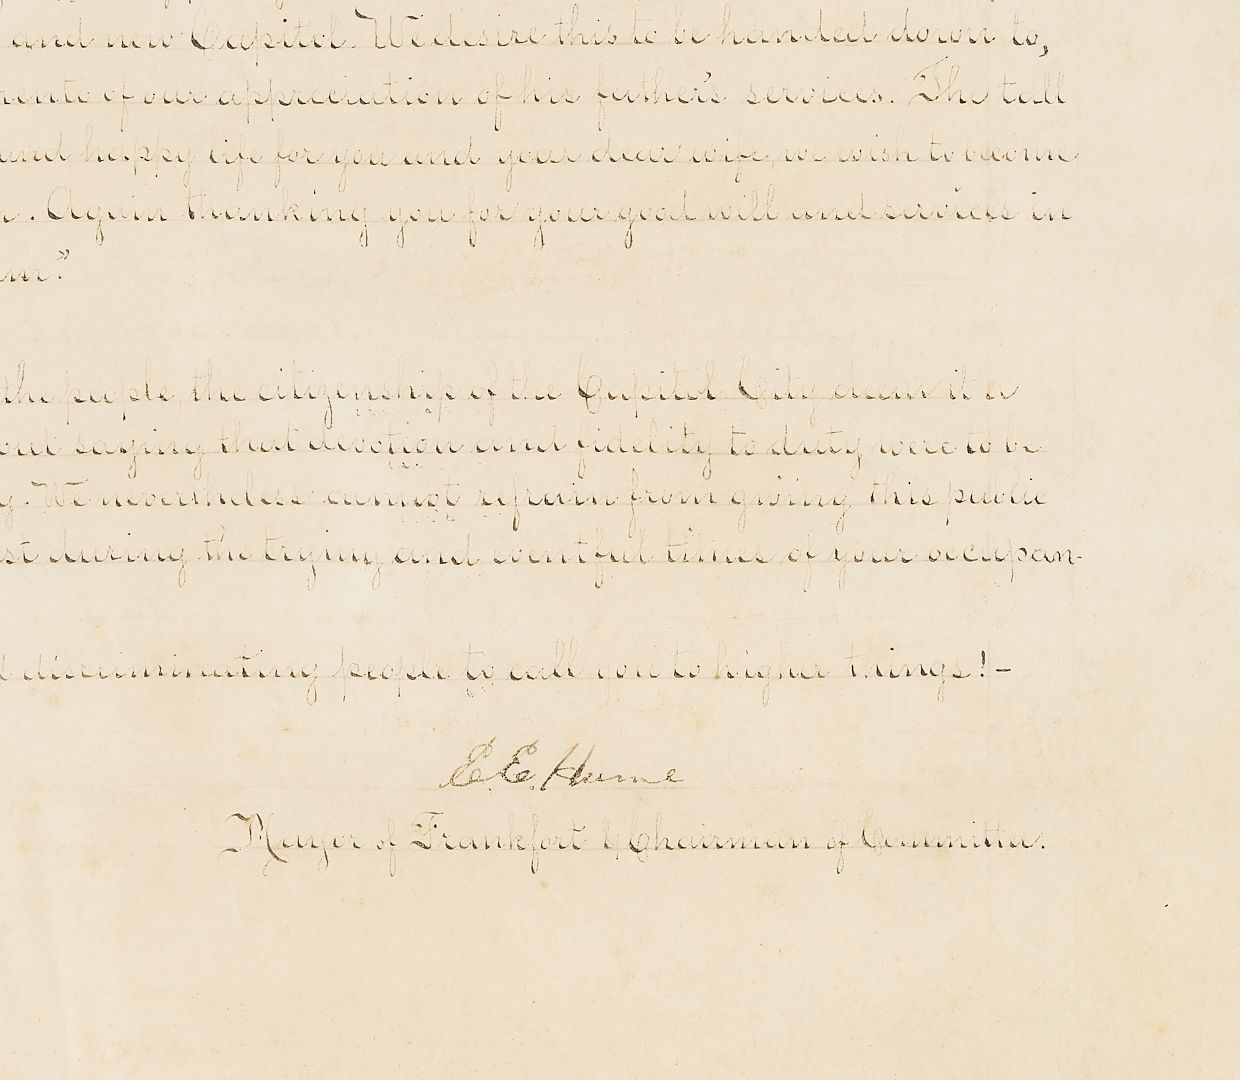 and new Capitol. We desire this to be handed down to,
mento of our appreciation of his father's services. The tall
and happy life for you and your dear wife, we wish to become
. Again thanking you for your good will and services in
"
the people, the citizenship of the Capitol City deem it a
out saying that devotion and fidelity to duty were to be
y. We nevertheless cannot refrain from giving this public
st during the trying and eventful times of your occupan-
d discriminating people to call you to higher things!-
E. E. Hume
Mayor of Frankfort & Chairman of Committee.